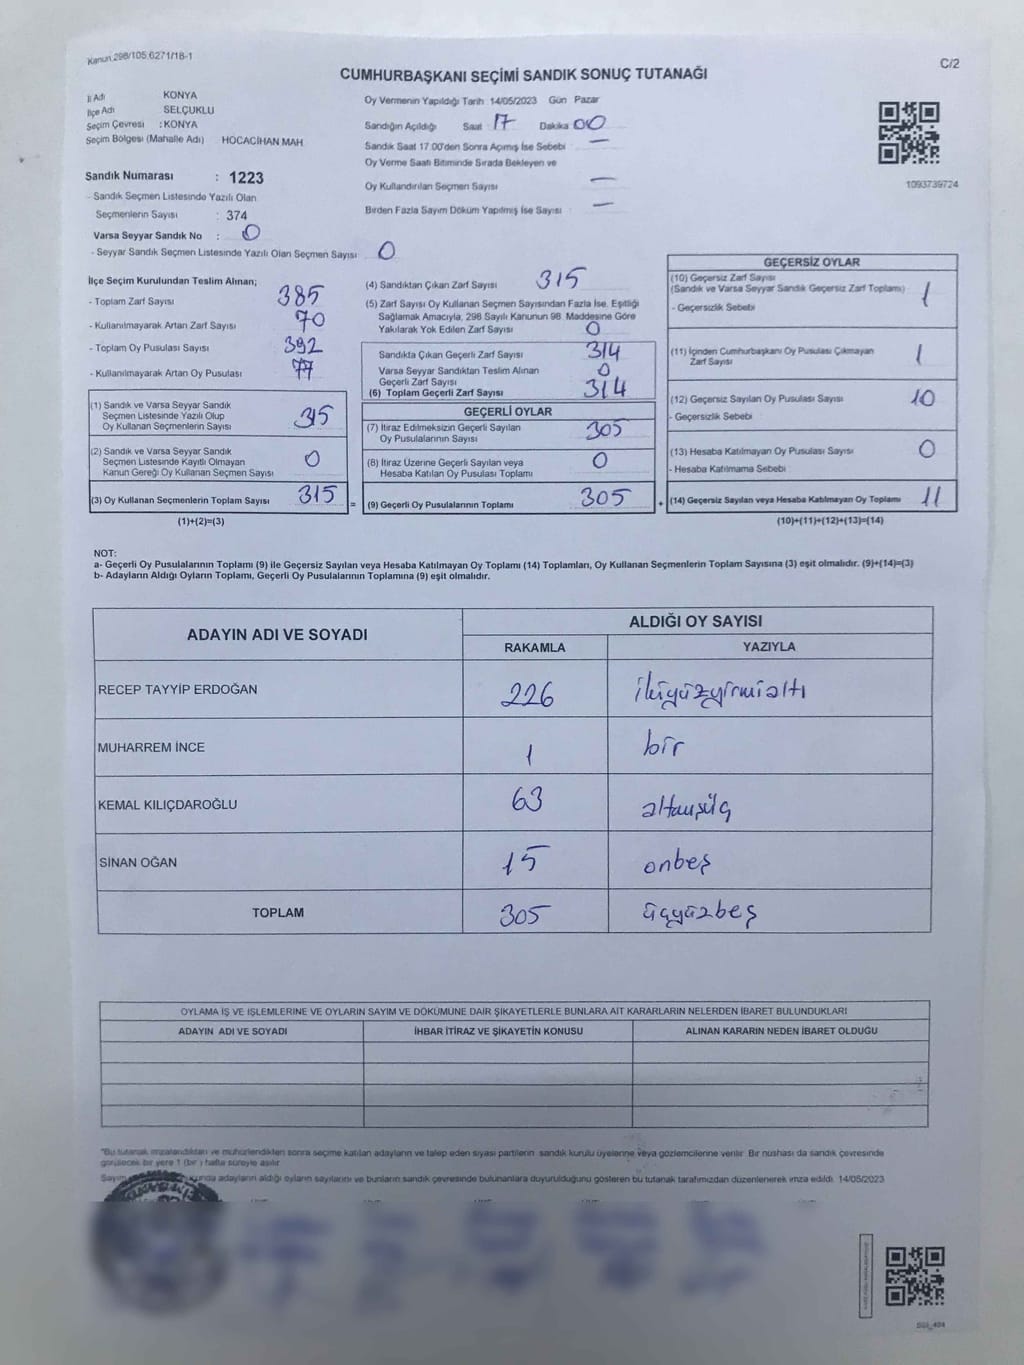 Kanun 298/105 6271/18-1
C/2
CUMHURBAŞKANI SEÇİMİ SANDIK SONUÇ TUTANAĞI
İl Adı KONYA
İlçe Adı SELÇUKLU
Seçim Çevresi : KONYA
Seçim Bölgesi (Mahalle Adı) HOCACİHAN MAH.
Sandık Numarası : 1223
- Sandık Seçmen Listesinde Yazılı Olan
Seçmenlerin Sayısı : 374
Varsa Seyyar Sandık No : 0
- Seyyar Sandık Seçmen Listesinde Yazılı Olan Seçmen Sayısı 0
Oy Vermenin Yapıldığı Tarih 14/05/2023 Gün Pazar
Sandığın Açıldığı Saat 17 Dakika 00
Sandık Saat 17:00'den Sonra Açımış İse Sebebi —
Oy Verme Saati Bitiminde Sırada Bekleyen ve
Oy Kullandırılan Seçmen Sayısı —
Birden Fazla Sayım Döküm Yapılmış İse Sayısı : —
1093739724
İlçe Seçim Kurulundan Teslim Alınan;
- Toplam Zarf Sayısı 385
- Kullanılmayarak Artan Zarf Sayısı 70
- Toplam Oy Pusulası Sayısı 392
- Kullanılmayarak Artan Oy Pusulası 77
(1) Sandık ve Varsa Seyyar Sandık
Seçmen Listesinde Yazılı Olup
Oy Kullanan Seçmenlerin Sayısı 315
(2) Sandık ve Varsa Seyyar Sandık
Seçmen Listesinde Kayıtlı Olmayan
Kanun Gereği Oy Kullanan Seçmen Sayısı 0
(3) Oy Kullanan Seçmenlerin Toplam Sayısı 315
(1)+(2)=(3)
=
(4) Sandıktan Çıkan Zarf Sayısı 315
(5) Zarf Sayısı Oy Kullanan Seçmen Sayısından Fazla İse, Eşitliği
Sağlamak Amacıyla, 298 Sayılı Kanunun 98. Maddesine Göre
Yakılarak Yok Edilen Zarf Sayısı 0
Sandıkta Çıkan Geçerli Zarf Sayısı 314
Varsa Seyyar Sandıktan Teslim Alınan
Geçerli Zarf Sayısı 0
(6) Toplam Geçerli Zarf Sayısı 314
GEÇERLİ OYLAR
(7) İtiraz Edilmeksizin Geçerli Sayılan
Oy Pusulalarının Sayısı 305
(8) İtiraz Üzerine Geçerli Sayılan veya
Hesaba Katılan Oy Pusulası Toplamı 0
(9) Geçerli Oy Pusulalarının Toplamı 305
+
GEÇERSİZ OYLAR
(10) Geçersiz Zarf Sayısı
(Sandık ve Varsa Seyyar Sandık Geçersiz Zarf Toplamı) 1
- Geçersizlik Sebebi
(11) İçinden Cumhurbaşkanı Oy Pusulası Çıkmayan
Zarf Sayısı 1
(12) Geçersiz Sayılan Oy Pusulası Sayısı 10
- Geçersizlik Sebebi
(13) Hesaba Katılmayan Oy Pusulası Sayısı 0
- Hesaba Katılmama Sebebi
(14) Geçersiz Sayılan veya Hesaba Katılmayan Oy Toplamı 11
(10)+(11)+(12)+(13)=(14)
NOT:
a- Geçerli Oy Pusulalarının Toplamı (9) ile Geçersiz Sayılan veya Hesaba Katılmayan Oy Toplamı (14) Toplamları, Oy Kullanan Seçmenlerin Toplam Sayısına (3) eşit olmalıdır. (9)+(14)=(3)
b- Adayların Aldığı Oyların Toplamı, Geçerli Oy Pusulalarının Toplamına (9) eşit olmalıdır.
ADAYIN ADI VE SOYADI ALDIĞI OY SAYISI
RAKAMLA YAZIYLA
RECEP TAYYİP ERDOĞAN 226 ikiyüzyirmialtı
MUHARREM İNCE 1 bir
KEMAL KILIÇDAROĞLU 63 altmışüç
SİNAN OĞAN 15 onbeş
TOPLAM 305 üçyüzbeş
OYLAMA İŞ VE İŞLEMLERİNE VE OYLARIN SAYIM VE DÖKÜMÜNE DAİR ŞİKAYETLERLE BUNLARA AİT KARARLARIN NELERDEN İBARET BULUNDUKLARI
ADAYIN ADI VE SOYADI İHBAR İTİRAZ VE ŞİKAYETİN KONUSU ALINAN KARARIN NEDEN İBARET OLDUĞU
"Bu tutanak imzalandıktan ve mühürlendikten sonra seçime katılan adayların ve talep eden siyasi partilerin sandık kurulu üyelerine veya gözlemcilerine verilir. Bir nüshası da sandık çevresinde
görülecek bir yere 1 (bir) hafta süreyle asılır.
Sayım adayların aldığı oyların sayılarını ve bunların sandık çevresinde bulunanlara duyurulduğunu gösteren bu tutanak tarafımızdan düzenlenerek imza edildi. 14/05/2023